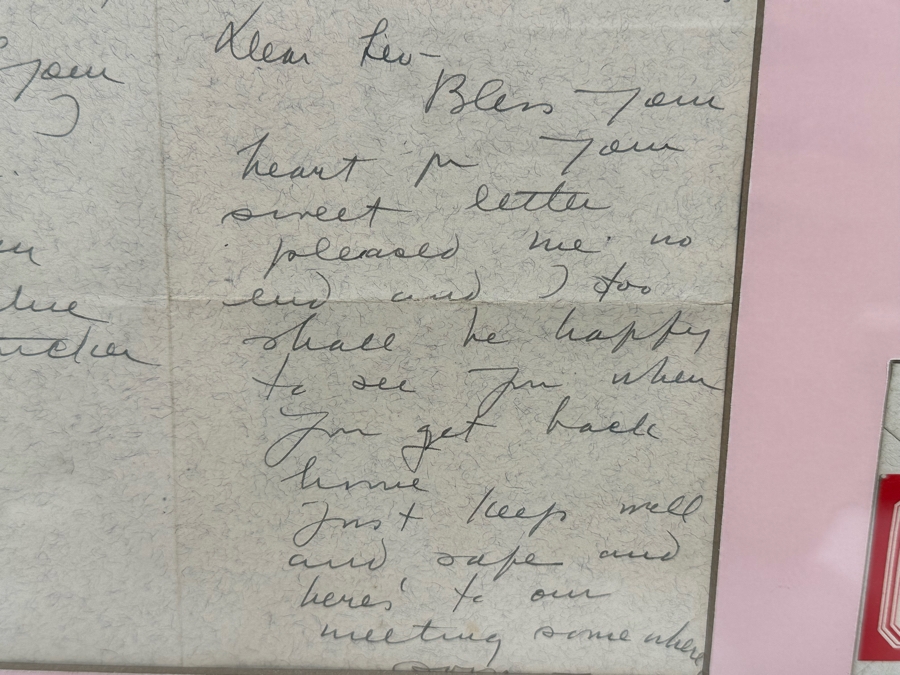 your
Dear Leo-
Bless your
heart for your
sweet letter
pleased me no
end and I too
shall be happy
to see you when
you get back
home
Just keep well
and safe and
here's to our
meeting somewhere